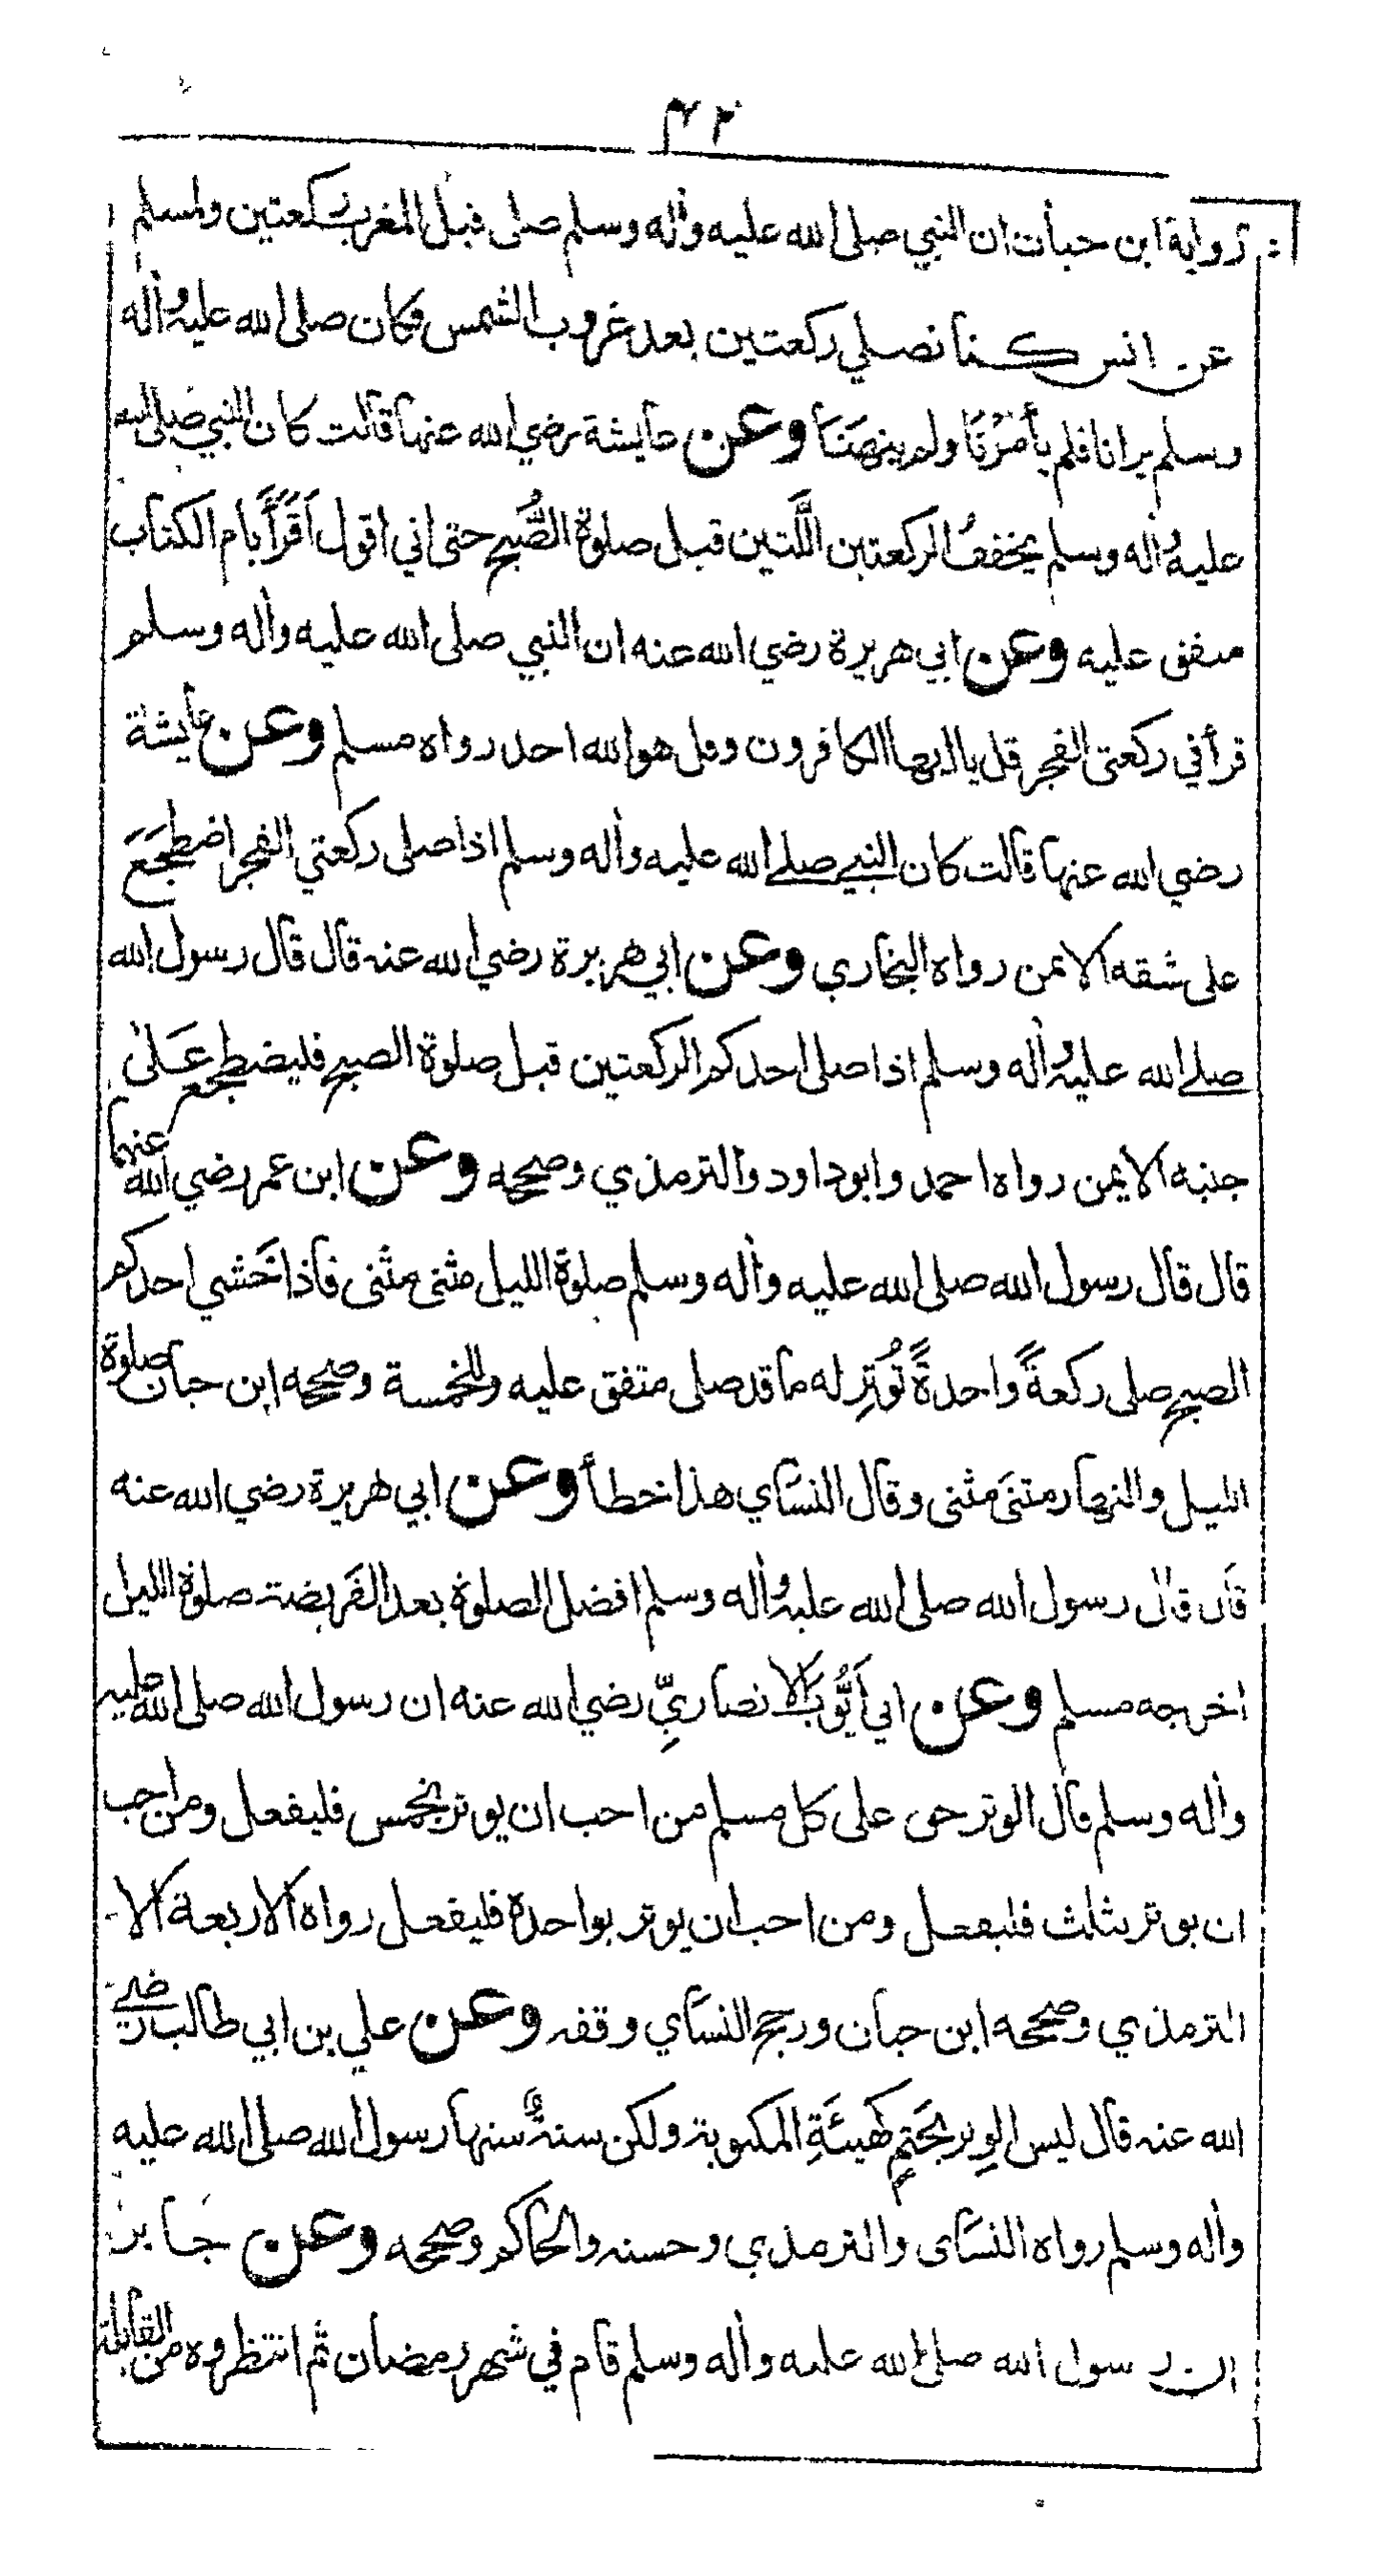 ٤٢
رواية ابن حبان ان النبي صلى الله عليه واٰله وسلم صلى قبل المغرب ركعتين ولمسلم
عن انس كنا نصلي ركعتين بعد غروب الشمس وكان صلى الله عليه واٰله
وسلم يرانا فلم يأمُرْنَا ولم ينهَنَا وعن عايشة رضي الله عنها قالت كان النبي صلى الله
عليه واٰله وسلم يخففُ الركعتين اللَّتين قبل صلوة الصُّبح حتى اني اقول اَقَرَأَ بام الكتاب
متفق عليه وعن ابي هريرة رضي الله عنه ان النبي صلى الله عليه واٰله وسلم
قرأ في ركعتى الفجر قل ياايها الكافرون وقل هو الله احد رواه مسلم وعن عايشة
رضي الله عنها قالت كان النبي صلے الله عليه واٰله وسلم اذا صلى ركعتي الفجر اضطجَعَ
على شقه الايمن رواه البخاري وعن ابي هريرة رضي الله عنه قال قال رسول الله
صلے الله عليه واٰله وسلم اذا صلى احدكم الركعتين قبل صلوة الصبح فليضطجع عَلىٰ
جنبه الايمن رواه احمد وابوداود والترمذي وصححه وعن ابن عمر رضي الله عنهما
قال قال رسول الله صلى الله عليه واٰله وسلم صلوة الليل مثنى مثنى فاذا خَشي احدكم
الصبح صلى ركعةً واحدةً تُوتِر له ما قد صلى متفق عليه وللخمسة وصححه ابن حبان صلوة
الليل والنهار مثنىَ مثنى وقال النسَاي هذا خطأ وعن ابي هريرة رضي الله عنه
قال قال رسول الله صلى الله عليه واٰله وسلم افضل الصلوة بعد الفَريضة صلوة الليل
اخرجه مسلم وعن ابي اَيُّوبَ الانصاريِّ رضي الله عنه ان رسول الله صلى الله عليه
واٰله وسلم قال الوتر حق على كل مسلم من احب ان يوتر بخمس فليفعل ومن احب
ان يوتر بثلث فليفعل ومن احب ان يوتر بواحدة فليفعل رواه الاربعة الا
الترمذي وصححه ابن حبان ورجح النسَاي وقفه وعن علي بن ابي طالب رضے
الله عنه قال ليس الوِتر بحَتمٍ كهيئَةِ المكتوبة ولكن سنةٌ سنها رسول الله صلى الله عليه
واٰله وسلم رواه النسَاى والترمذي وحسنه والحاكم وصححه وعن جابر
ان رسول الله صلى الله عليه واٰله وسلم قام في شهر رمضان ثم انتظروه من القابلة